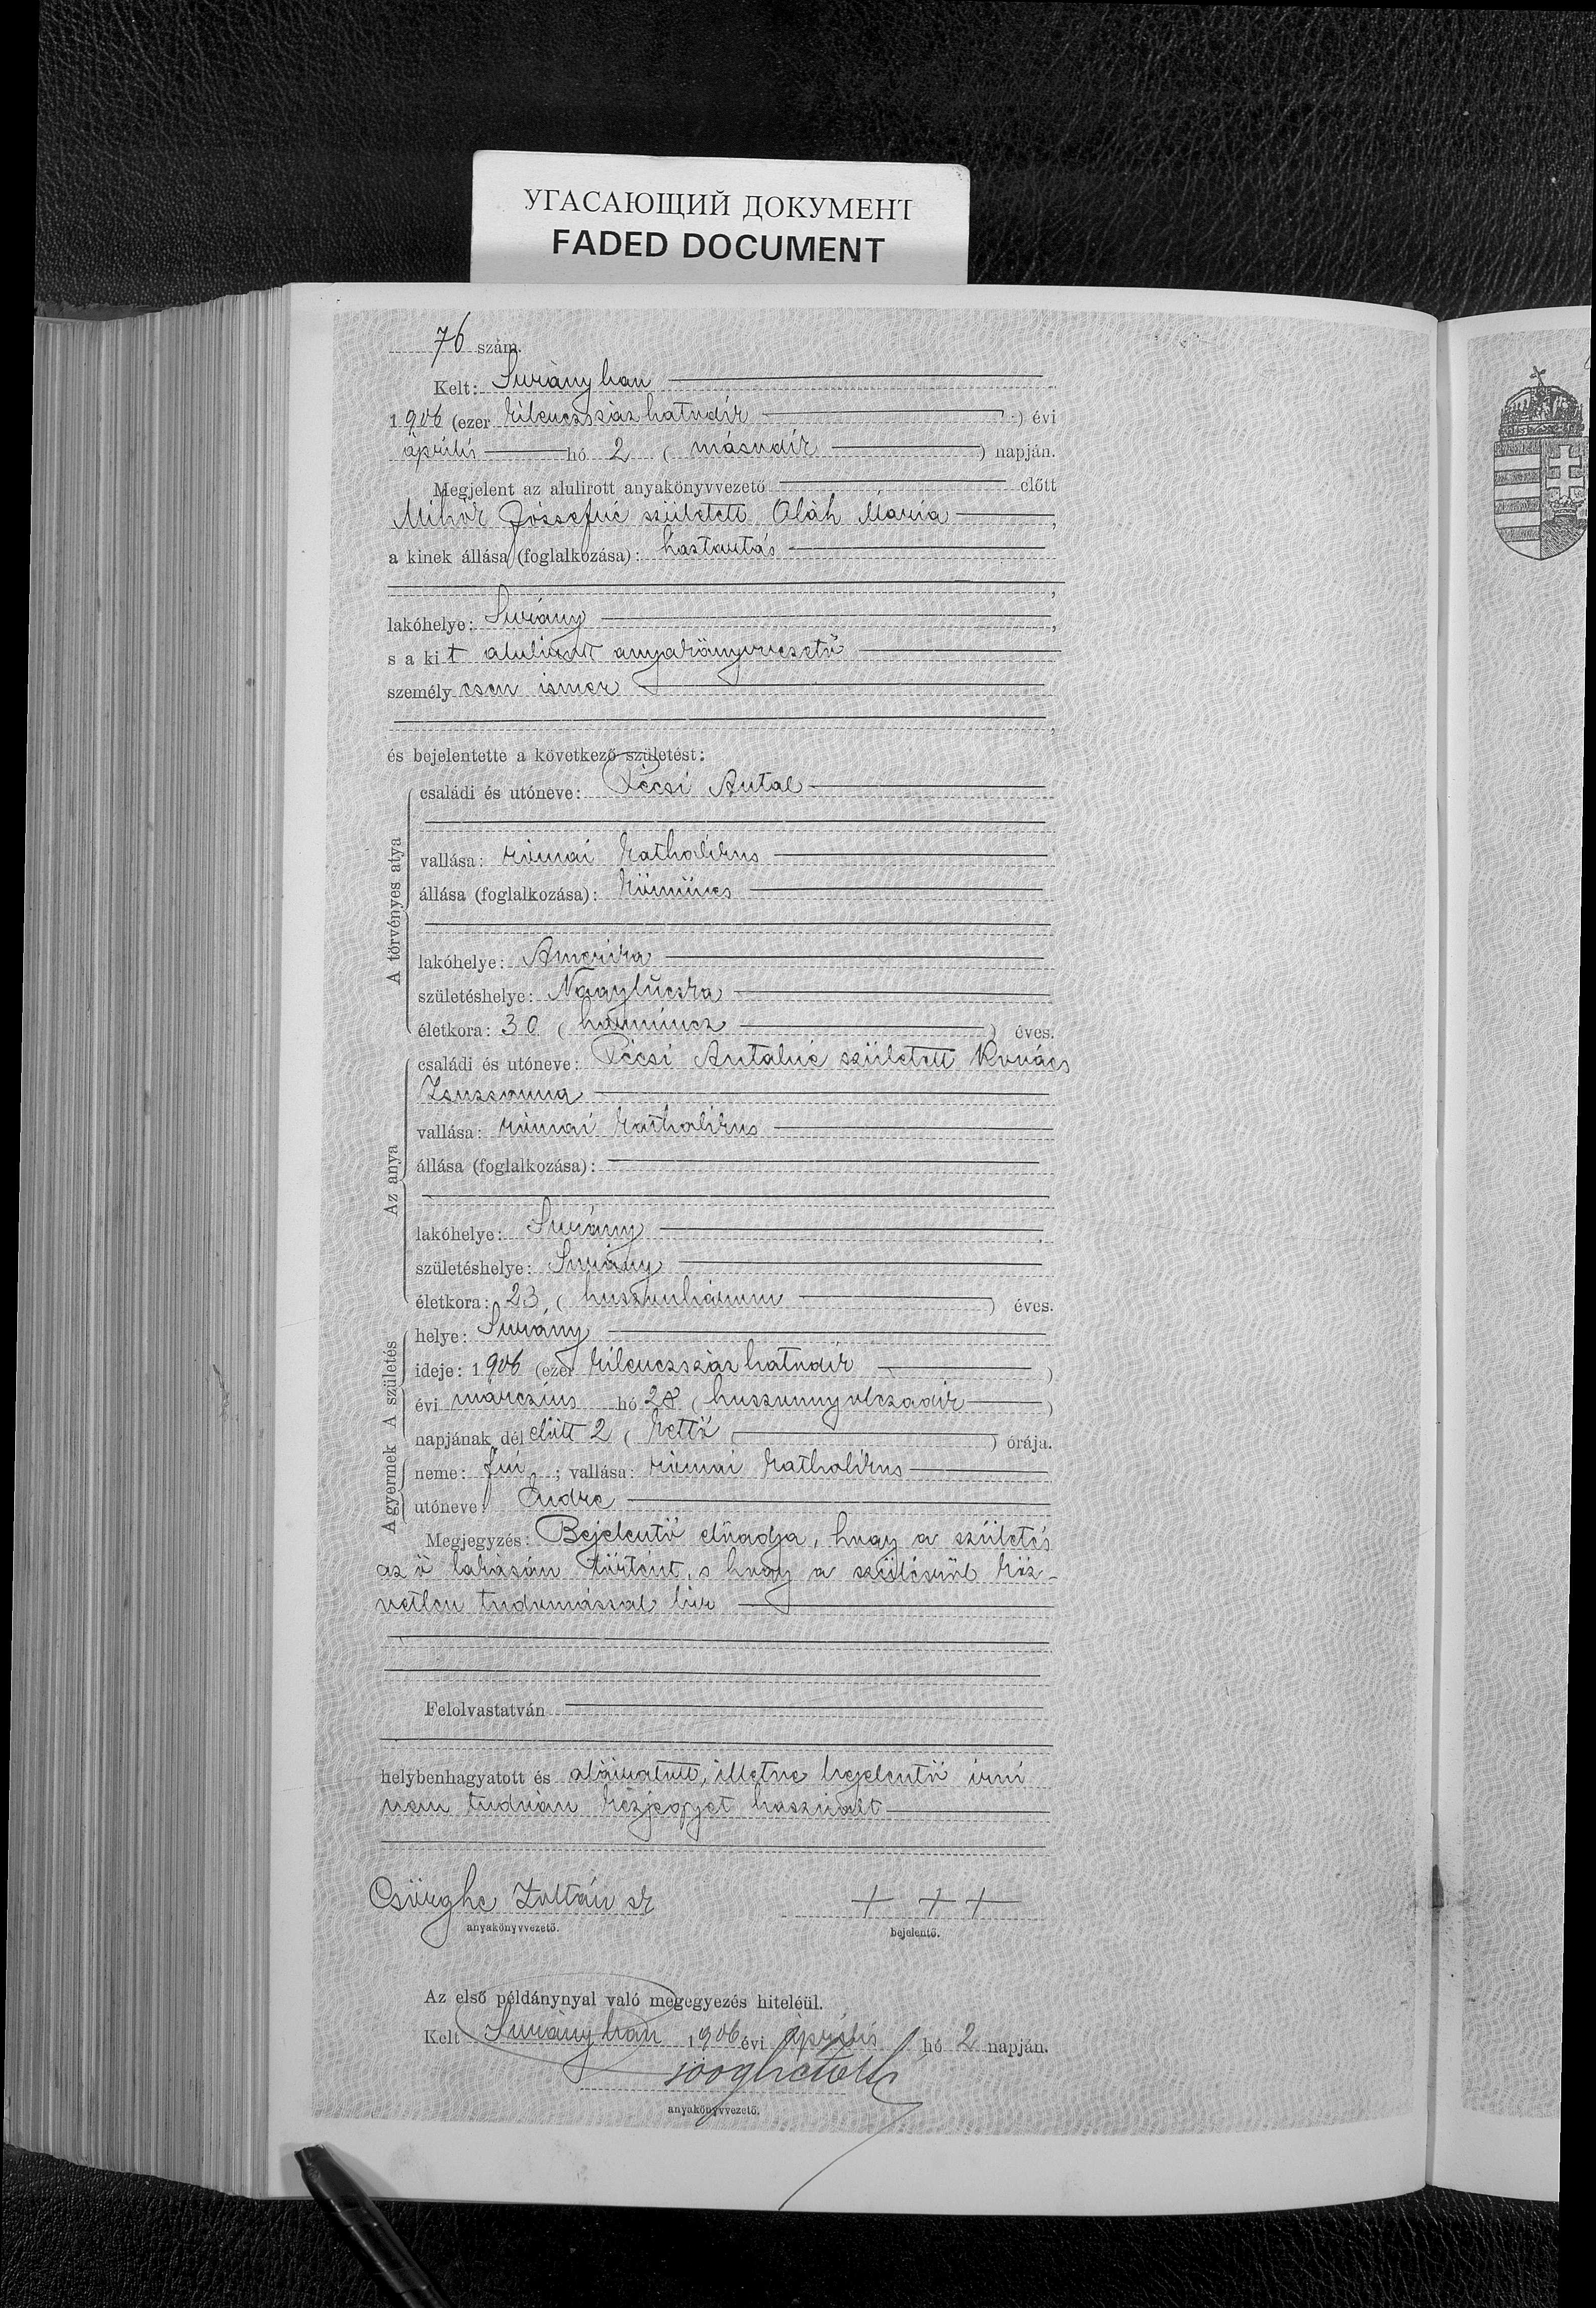 УГАСАЮЩИЙ ДОКУМЕНТ
FADED DOCUMENT
76 szám.
Kelt: Surányban
1906 (ezer kilenczszázhatodik) évi
április hó 2 (második) napján.
Megjelent az alulirott anyakönyvvezető előtt
Mihók Józsefné született Oláh Mária,
a kinek állása (foglalkozása): háztartás
,
lakóhelye: Surány,
s a kit alulirott anyakönyvvezető
személyesen ismer
,
és bejelentette a következő születést:
A törvényes atya
családi és utóneve: Pécsi Antal
vallása: római katholikus
állása (foglalkozása): kőmüves
lakóhelye: Amerika
születéshelye: Nagylúcska
életkora: 30 (harmincz) éves.
Az anya
családi és utóneve: Pécsi Antalné született Kovács
Zsuzsanna
vallása: római katholikus
állása (foglalkozása):
lakóhelye: Surány
születéshelye: Surány
életkora: 23 (huszonhárom) éves.
A születés
helye: Surány
ideje: 1906 (ezer kilenczszázhatodik)
évi márczius hó 28 (huszonnyolczadik)
napjának délelőtt 2 (kettő) órája.
A gyermek
neme: fiú; vallása: római katholikus
utóneve: Endre
Megjegyzés: Bejelentő előadja, hogy a születés
az ő lakásán történt, s hogy a szülésről köz-
vetlen tudomással bir
Felolvastatván
helybenhagyatott és aláiratott, illetve bejelentő irni
nem tudván kézjegyet használt
Csörghe Zoltán sk
+ + +
anyakönyvvezető.
bejelentő.
Az első példánynyal való megegyezés hiteléül.
Kelt Surányban 1906 évi április hó 2 napján.
anyakönyvvezető.